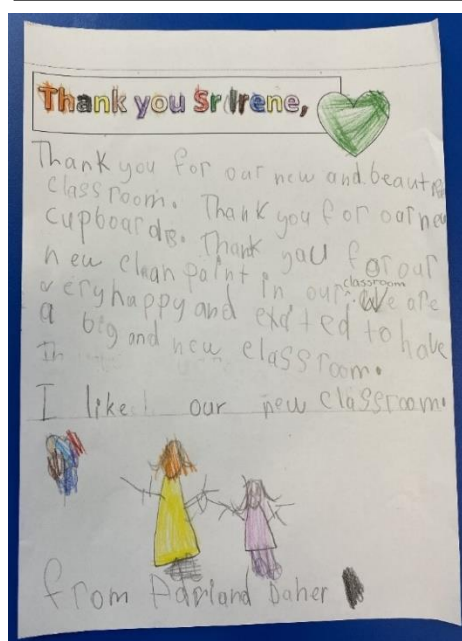 Thank you Sr Irene,
Thank you for our new and beautiful
classroom. Thank you for our new
cupboards. Thank you for our
new clean paint in our classroom. We are
very happy and excited to have
a big and new classroom.
I like our new classroom.
from Daher